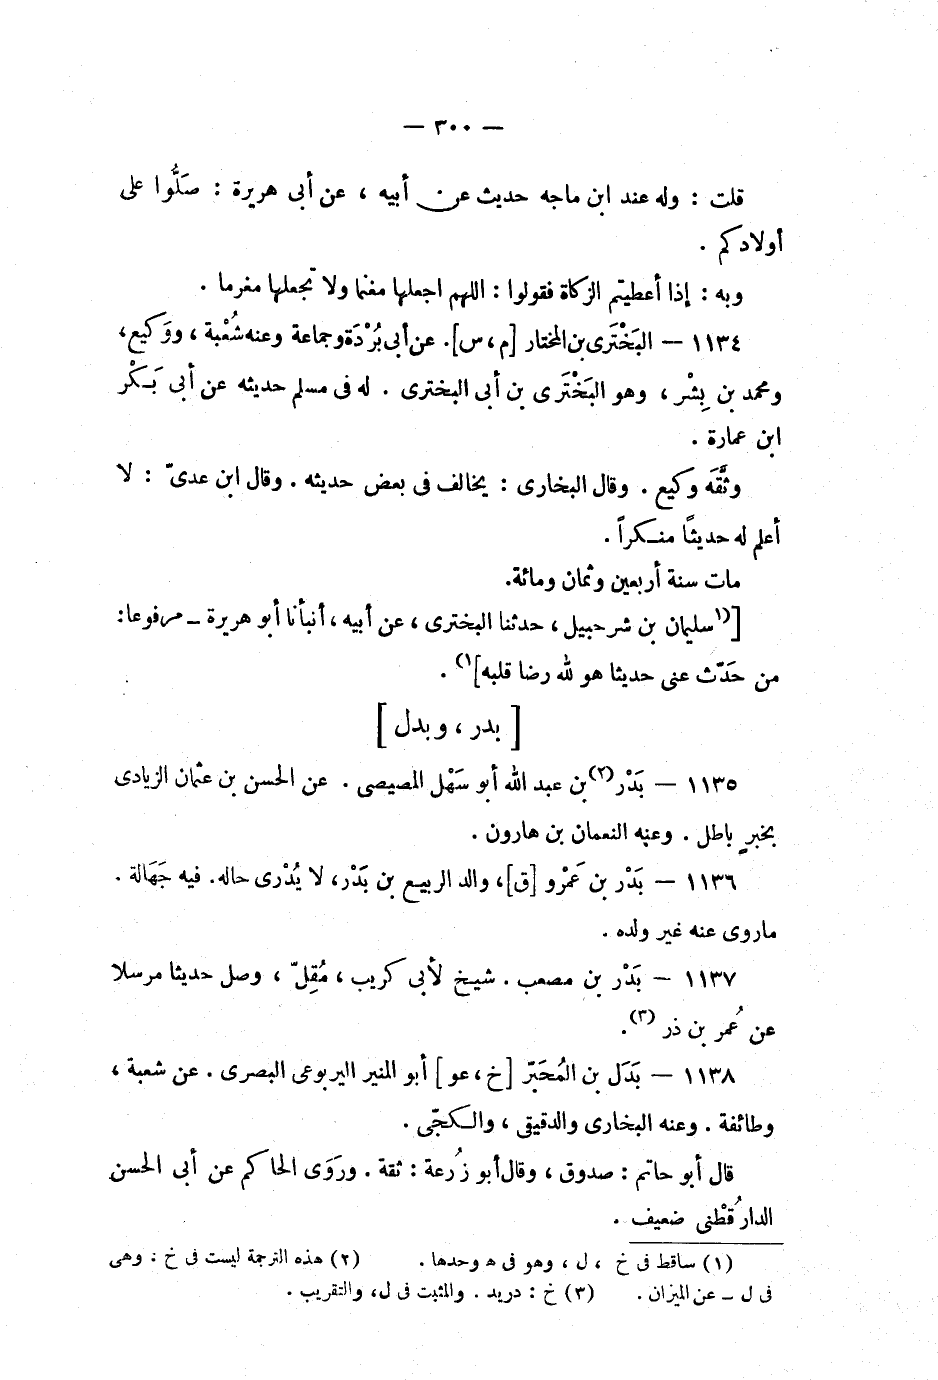 — ٣٠٠ —
قلت : وله عند ابن ماجه حديث عن أبيه ، عن أبى هريرة : صَلُّوا على
أولادكم .
وبه : إذا أعطيتم الزكاة فقولوا : اللهم اجعلها مغنما ولا تجعلها مغرما .
١١٣٤ – البَخْتَرى بن المختار [م ، س]. عن أبى بُرْدَة وجماعة وعنه شُعْبة ، ووَكيع،
ومحمد بن بِشْر ، وهو البَخْتَرى بن أبى البخترى . له فى مسلم حديثه عن أبى بَكْر
ابن عمارة .
وثَّقَه وكيع . وقال البخارى : يخالف فى بعض حديثه . وقال ابن عدىّ : لا
أعلم له حديثًا منكراً .
مات سنة أربعين وثمان ومائة.
[(١ سليمان بن شرحبيل ، حدثنا البخترى ، عن أبيه ، أنبأنا أبو هريرة – مرفوعا:
من حَدّث عنى حديثا هو لله رضا قلبه](١) .
[ بدر ، وبدل ]
١١٣٥ – بَدْر(٢) بن عبد الله أبو سَهْل المصيصى . عن الحسن بن عثمان الزيادى
بخبرٍ باطل . وعنه النعمان بن هارون .
١١٣٦ – بَدْر بن عَمْرو [ق]، والد الربيع بن بَدْر، لا يُدْرى حاله. فيه جَهَالة .
ماروى عنه غير ولده .
١١٣٧ – بَدْر بن مصعب . شيخ لأبى كريب ، مُقِلّ ، وصل حديثا مرسلا
عن عُمر بن ذر (٣).
١١٣٨ – بَدَل بن المُحَبّر [خ ، عو] أبو المنير اليربوعى البصرى . عن شعبة ،
وطائفة . وعنه البخارى والدقيقى ، والكجّى .
قال أبو حاتم : صدوق ، وقال أبو زُرعة : ثقة . ورَوَى الحاكم عن أبى الحسن
الدارقُطْنى ضعيف .
(١) ساقط فى خ ، ل ، وهو فى ه وحدها . (٢) هذه الترجمة ليست فى خ : وهى
فى ل – عن الميزان . (٣) خ : دريد . والمثبت فى ل، والتقريب .